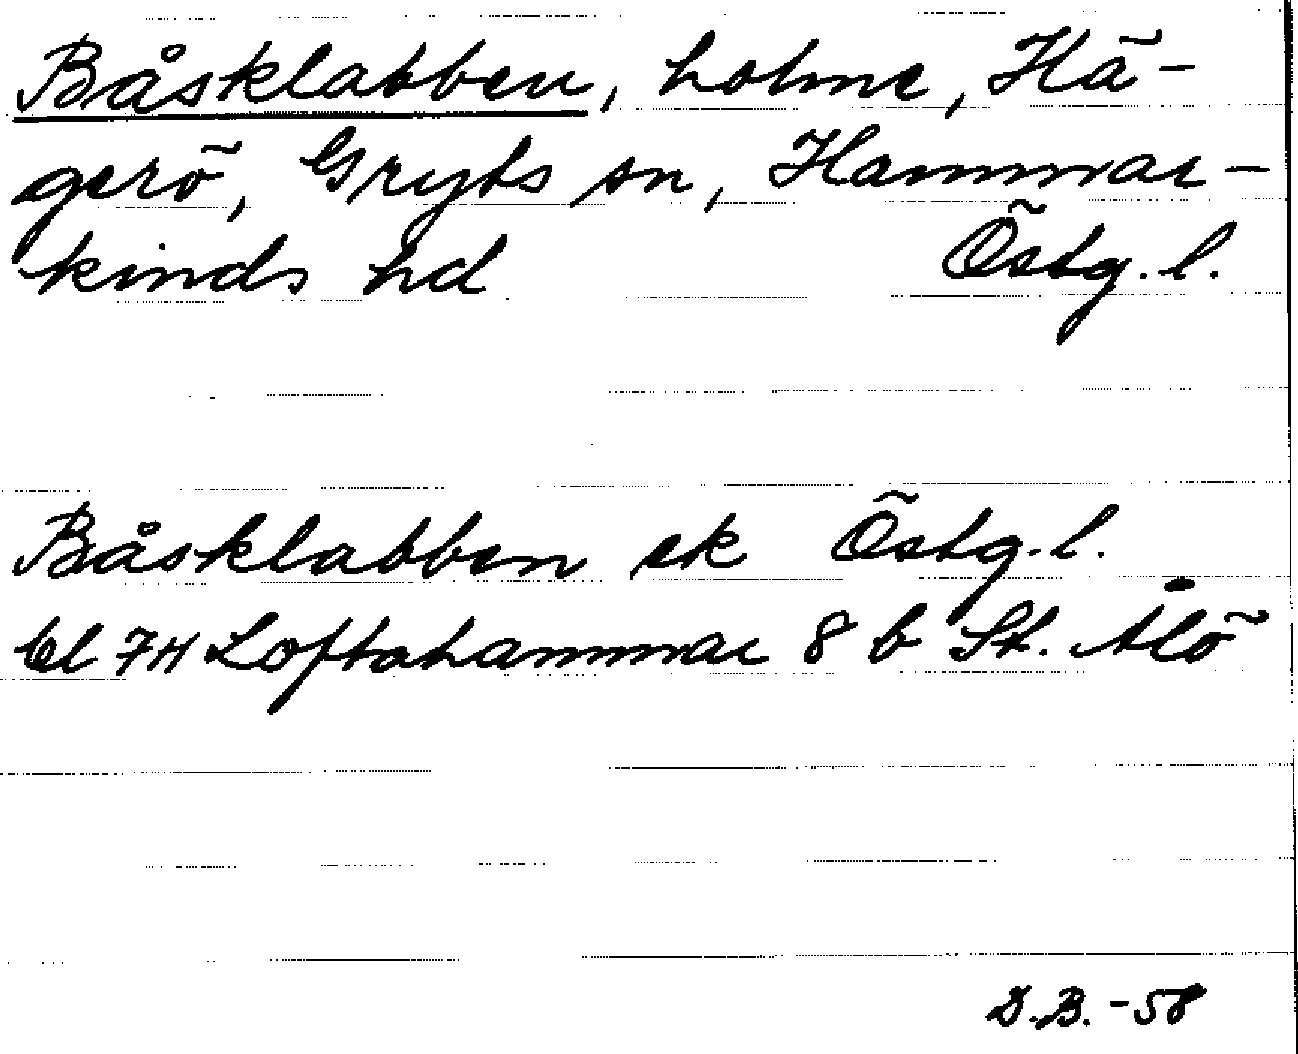 Båsklabben, holme, Hä-
gerö, Gryts sn, Hammar-
kinds hd Östg. l.
Båsklabben ek Östg. l.
bl 7H Loftahammar 8 b St. Ålö
D.B. -58